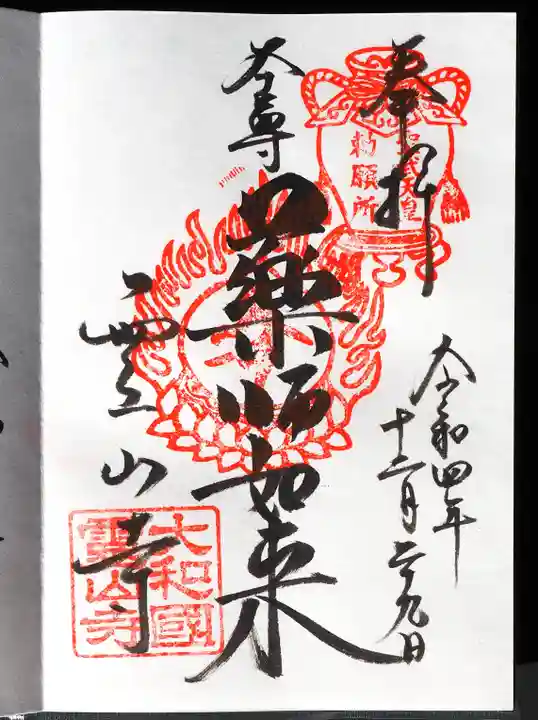 奉拝
聖武天皇
勅願所
令和四年
十二月二十九日
本尊
薬師如来
霊山寺
大和國
霊山寺